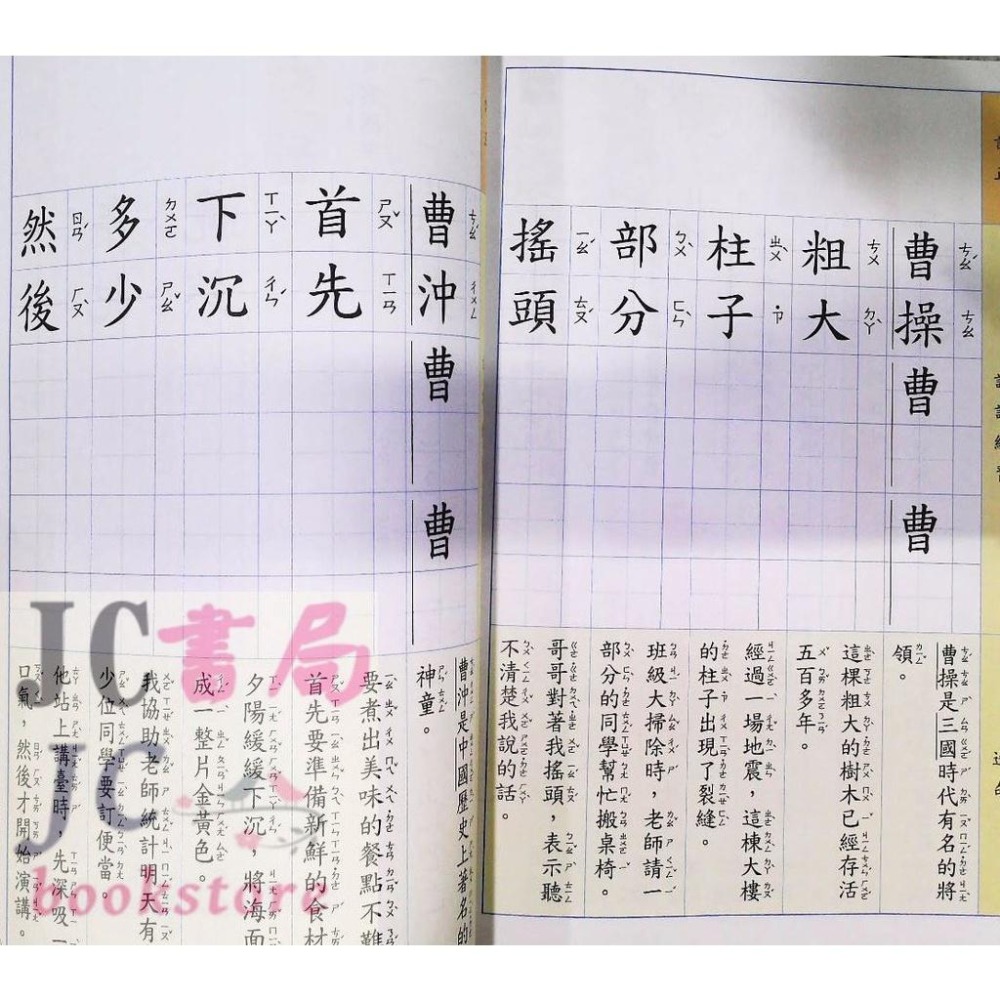 曹操
曹
曹
曹操是三國時代有名的將
領。
粗大
這棵粗大的樹木已經存活
五百多年。
柱子
經過一場地震，這棟大樓
的柱子出現了裂縫。
部分
班級大掃除時，老師請一
部分的同學幫忙搬桌椅。
搖頭
哥哥對著我搖頭，表示聽
不清楚我說的話。
曹沖
曹
曹
曹沖是中國歷史上著名的
神童。
首先
要煮出美味的餐點不難
首先要準備新鮮的食材
下沉
夕陽緩緩下沉，將海面
成一整片金黃色。
多少
我協助老師統計明天有
少位同學要訂便當。
然後
他站上講臺時，先深吸一
口氣，然後才開始演講。
JC書局
JC
bookstore